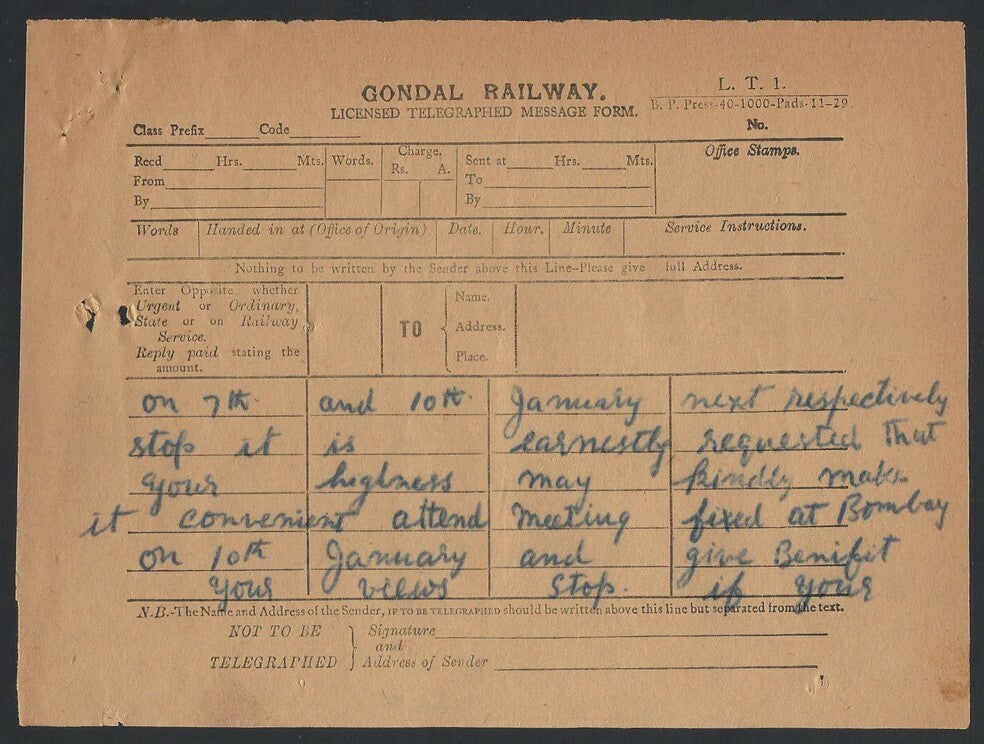 GONDAL RAILWAY.
LICENSED TELEGRAPHED MESSAGE FORM.
L. T. 1.
B. P. Press-40-1000-Pads-11-29.
No.
Class Prefix Code
Recd Hrs. Mts.
From
By
Words.
Charge.
Rs. A.
Sent at Hrs. Mts.
To
By
Office Stamps.
Words Handed in at (Office of Origin) Date. Hour. Minute Service Instructions.
Nothing to be written by the Sender above this Line-Please give full Address.
Enter Opposite whether
Urgent or Ordinary,
State or on Railway
Service.
Reply paid stating the
amount.
TO
Name.
Address.
Place.
on 7th and 10th January next respectively
stop it is earnestly requested That
your highness may kindly make
it convenient attend meeting fixed at Bombay
on 10th January and give Benifit
your views stop. if your
N.B.-The Name and Address of the Sender, IF TO BE TELEGRAPHED should be written above this line but separated from the text.
NOT TO BE
TELEGRAPHED
Signature
and
Address of Sender